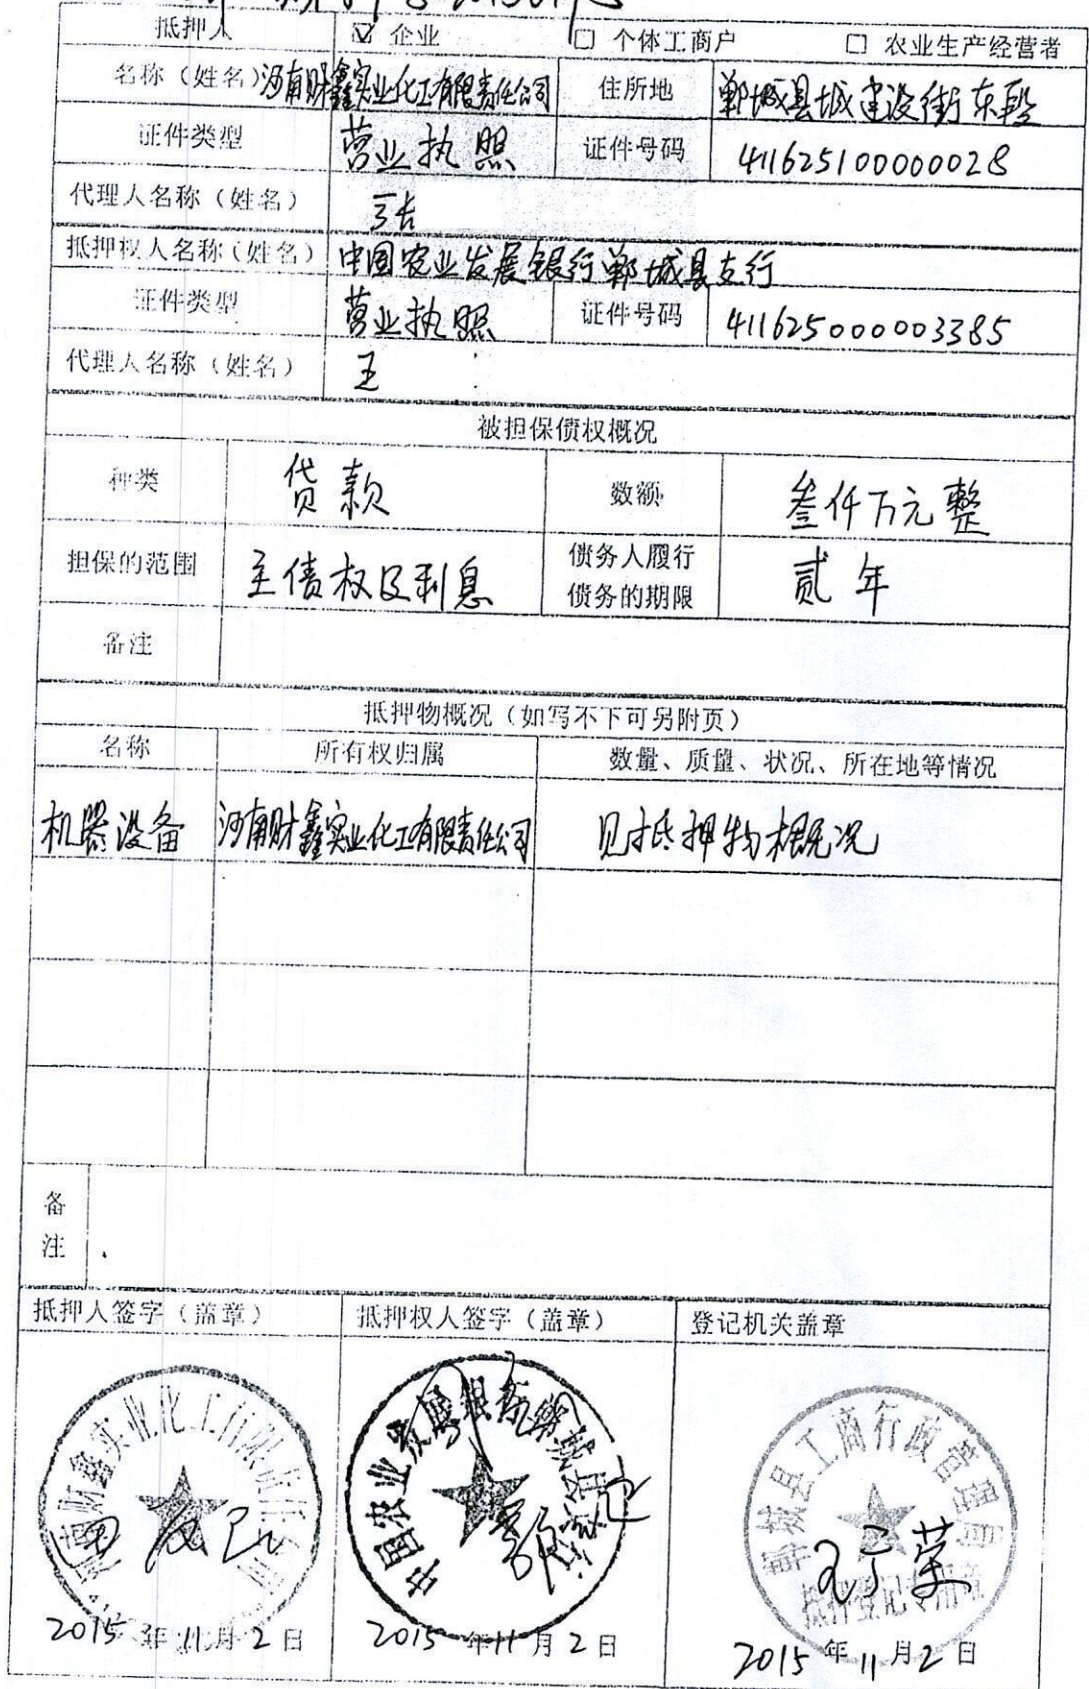 抵押人 ☑ 企业 □ 个体工商户 □ 农业生产经营者
名称（姓名） 河南财鑫实业化工有限责任公司 住所地 郸城县城建设街东段
证件类型 营业执照 证件号码 411625100000028
代理人名称（姓名）
抵押权人名称（姓名） 中国农业发展银行郸城县支行
证件类型 营业执照 证件号码 411625000003385
代理人名称（姓名） 王
被担保债权概况
种类 贷款 数额 叁仟万元整
担保的范围 主债权及利息 债务人履行债务的期限 贰年
备注
抵押物概况（如写不下可另附页）
名称 所有权归属 数量、质量、状况、所在地等情况
机器设备 河南财鑫实业化工有限责任公司 见抵押物概况
备注
抵押人签字（盖章） 抵押权人签字（盖章） 登记机关盖章
河南财鑫实业化工有限责任公司
中国农业发展银行郸城县支行
郸城县工商行政管理局
抵押登记专用章
2015年11月2日 2015年11月2日 2015年11月2日